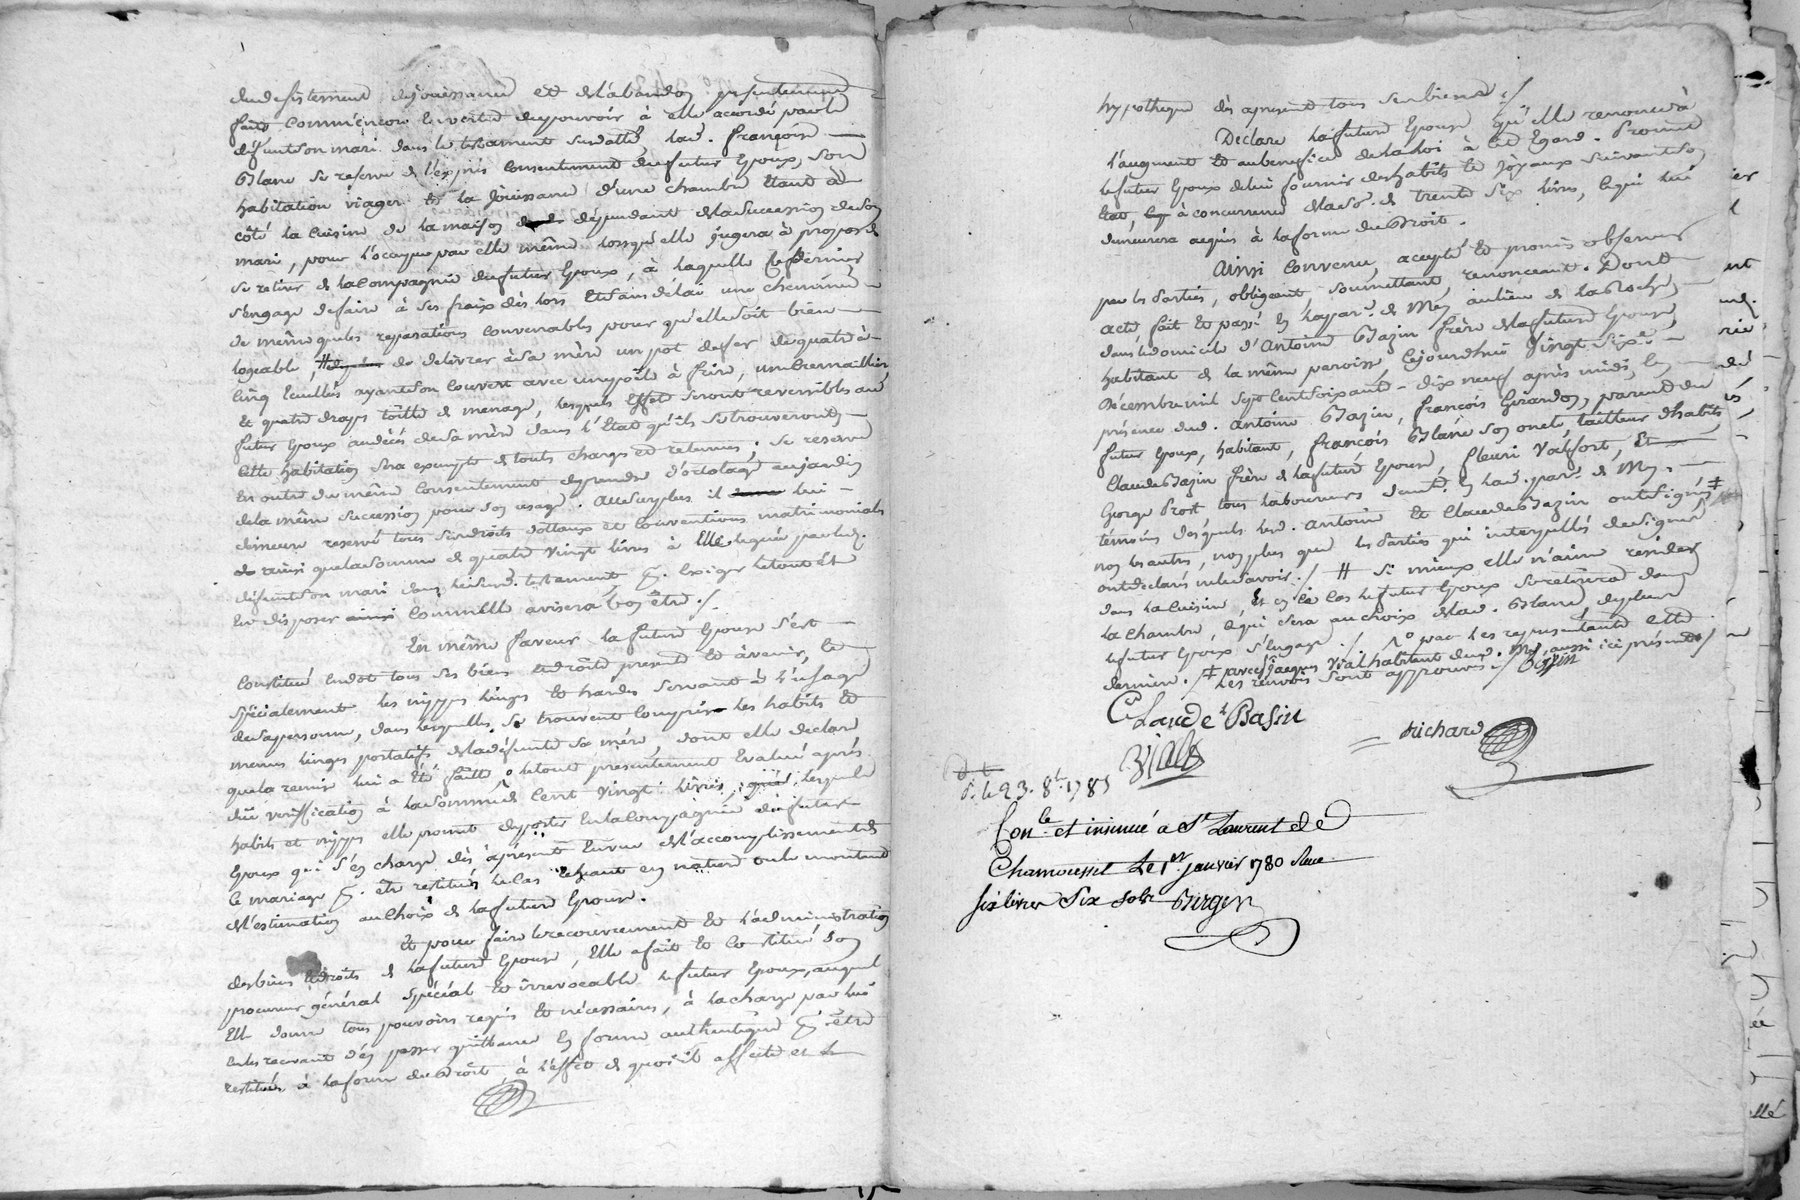 du désistement de jouissance et de l'abandon présentement
fait commencer en vertu du pouvoir à elle accordé par le
défunt son mari dans le testament susdatté, lad. françoise
Blanc se reserve de l'exprès consentement du futur Epoux, son
habitation viager et la Jouissance d'une chambre Etant à
côté la Cuisine de la maison dépendant de la succession de son
mari, pour l'occuper par elle même lorsqu'elle jugera à propos de
se retirer de la compagnie du futur Epoux, à laquelle ce dernier
s'engage de faire à ses fraix dès lors et sans délai une cheminée
de même que les reparations convenables pour qu'elle soit bien
logeable, # de delivrer à sa mère un pot de fer de quatre à
cinq Ecuelles ayant son couvert avec une poële à frire, un cremaillier
Et quatre draps toille de menage, lesquels Effets seront reversibles au
futur Epoux au décès de sa mère dans l'Etat qu'ils se trouveront
Cette habitation sera exempte de touts charges et retenues; se reserve
En outre du même consentement de prendre d'ortolage au jardin
de la même succession pour son usage. Au surplus il lui
demeure reservé tous ses droits dottaux et Conventions matrimoniales
ainsi que la somme de quatre vingt livres à Elle leguée par led.
défunt son mari dans led. susd. testament, p. Exiger le tout Et
En disposer comme Elle avisera bon être ./.
En même faveur la future Epouse s'est
Constitué En dot tous ses biens et droits present et à venir, et
spécialement les nippes linges et hardes servant à l'usage
de sa personne, dans lesquelles se trouvent compris les habits et
menus linges portatifs de la défunte sa mère, dont elle declare
que la remise lui a Eté faitte, le tout présentement Evalué après
due vérification à la somme de Cent vingt livres, lesquels
habits et nippes elle promet de porter En la compagnie du futur
Epoux qui s'en charge dès àprésent En vue de l'accomplissement de
ce mariage p. être restitués le Cas Echeant en nature ou le montant
de l'estimation au choix de la future Epouse.
Et pour faire le recouvrement et l'administration
des biens et droits de la future Epouse, Elle a fait et Constitué son
procureur général spécial et irrevocable le futur Epoux, auquel
Elle donne tous pouvoirs requis et nécessaires, à la charge par lui
en les recevant d'en passer quittance en forme authentique p. être
restitués à la forme du Droit, à l'effet de quoi il affecte et
hypotheque dès apresent tous ses biens ./
Declare la future Epouse qu'elle renonce à
l'augment et au benefice de la loi à cet Egard. Promet
le futur Epoux de lui fournir des habits et Joyaux suivant son
Etat, à concurrence de la so. de trente six livres, ce qui lui
demeurera acquis à la forme du Droit.
Ainsi Convenu, accepté et promis observer
par les Parties, obligeant, soumettant, renonceant. Dont
acte fait et passé en la par. de Mey au lieu de la Roche,
dans le domicile d'Antoine Bazin frère de la future Epouse
habitant de la même paroisse, le jourdhui vingt six
Décembre mil sept cent soixante-dix neuf après midi, En
présence dud. Antoine Bazin, françois Girardon, parent du
futur Epoux, habitant, françois Blanc son oncle, tailleur d'habits
Claude Bazin frère de la future Epouse, fleuri Valfort, Et
George Prost tous laboureurs en lad. par. de Mey,
témoins desquels led. Antoine et Claude Bazin ont signés ‡
non les autres, non plus que les Parties qui interpellés de signer
ont declarés ne le savoir ./ # si mieux elle n'aime resider
dans la Cuisine, et en ce Cas le futur Epoux se retirera dans
la chambre, ce qui sera au choix de lad. Blanc,
le futur Epoux s'engage ./ par les representants cette
derniere ./ ‡ avec Jacques Vial habitant dud. Mey, aussi ici présent ./
les renvois sont approuvés ./ Bazin
Claude Basin
richard
Vial
d. le 23. 8b. 1785
Conlé et insinué a St Laurent de
Chamousset le 1er janvier 1780 Reçu
six livres six sols Burgen